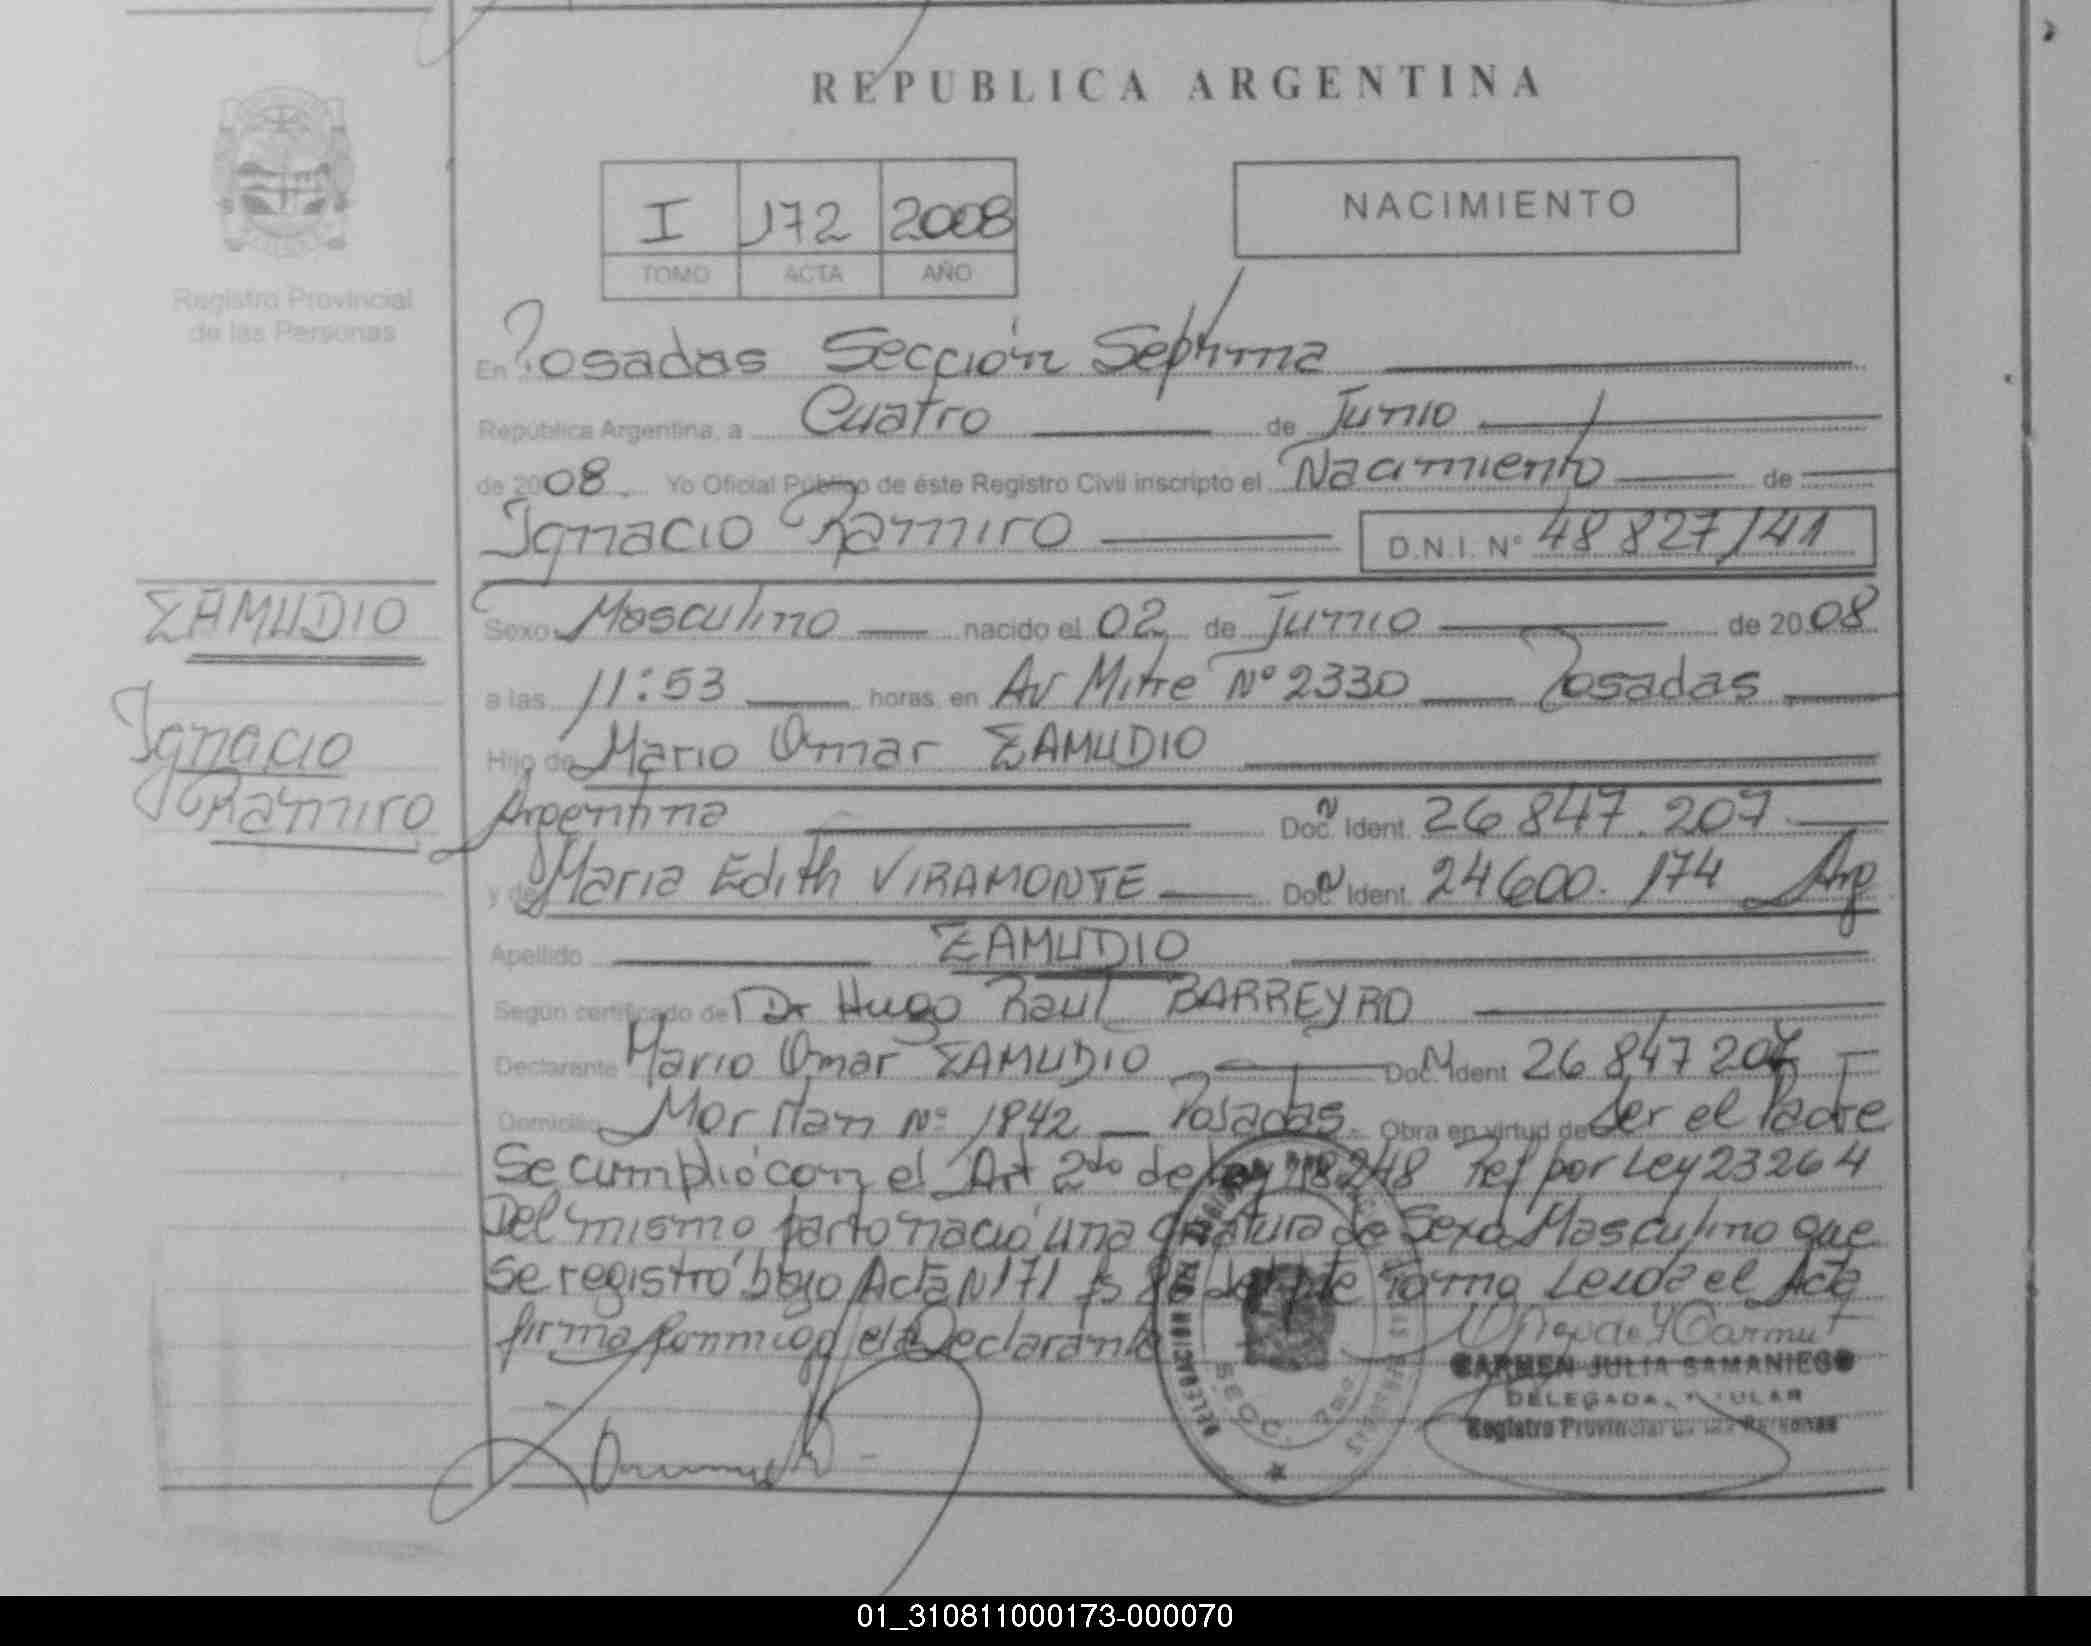 REPUBLICA ARGENTINA
I 172 2008
TOMO ACTA AÑO
NACIMIENTO
Registro Provincial
de las Personas
En Posadas Sección Séptima
República Argentina, a Cuatro de Junio
de 2008. Yo Oficial Público de éste Registro Civil inscripto el Nacimiento de
Ignacio Ramiro D.N.I. Nº 48 827 141
ZAMUDIO
Ignacio
Ramiro
Sexo Masculino nacido el 02 de Junio de 2008
a las 11:53 horas, en Av Mitre Nº 2330 Posadas
Hijo de Mario Omar ZAMUDIO
Argentina Doc. Ident. 26 847.207
y de Maria Edith VIRAMONTE Doc. Ident. 24600.174 Arg
Apellido ZAMUDIO
Según certificado de Dr Hugo Raul BARREYRO
Declarante Mario Omar ZAMUDIO Doc. Ident 26 847 207
Domicilio Nº 1842 Posadas. Obra en virtud de Ser el Padre
Se cumplió con el Art 2do de Ley 18248 Ref por Ley 23264
Del mismo parto nació una criatura de Sexo Masculino que
Se registró bajo Acta N 171 fs del Tomo Leida el Acta
firma conmigo el Declarante
CARMEN JULIA SAMANIEGO
DELEGADA TITULAR
Registro Provincial de las Personas
01_310811000173-000070